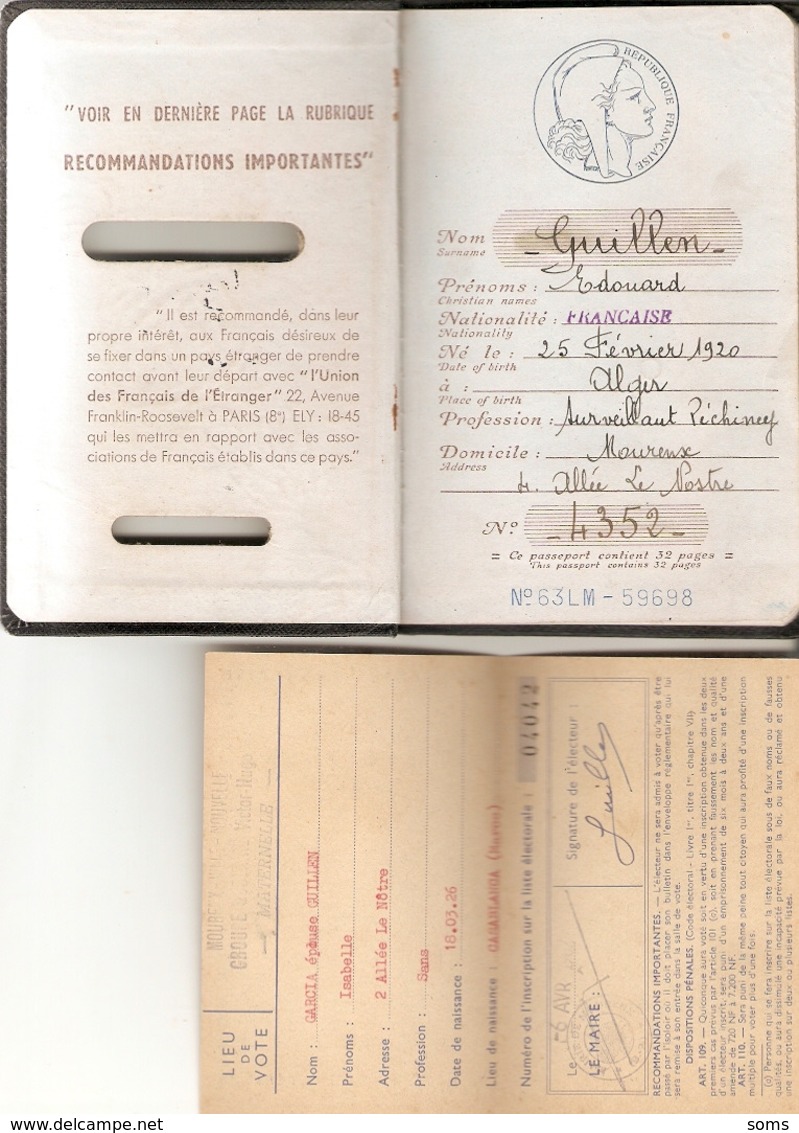 "VOIR EN DERNIÈRE PAGE LA RUBRIQUE
RECOMMANDATIONS IMPORTANTES"
"Il est recommandé, dans leur
propre intérêt, aux Français désireux de
se fixer dans un pays étranger de prendre
contact avant leur départ avec "l'Union
des Français de l'Étranger" 22, Avenue
Franklin-Roosevelt à PARIS (8e) ELY : 18-45
qui les mettra en rapport avec les asso-
ciations de Français établis dans ce pays."
RÉPUBLIQUE FRANÇAISE
Nom Guillen
Surname
Prénoms : Edouard
Christian names
Nationalité : FRANCAISE
Nationality
Né le : 25 Février 1920
Date of birth
à : Alger
Place of birth
Profession : Surveillant Péchiney
Domicile : Mourenx
Address
4. Allée Le Nostre
No. -4352-
= Ce passeport contient 32 pages =
This passport contains 32 pages
No 63LM - 59698
LIEU
DE
VOTE
MOURENX-VILLE-NOUVELLE
GROUPE Victor-Hugo
MATERNELLE
Nom : GARCIA épouse GUILLEN
Prénoms : Isabelle
Adresse : 2 Allée Le Nôtre
Profession : Sans
Date de naissance : 18.03.26
Lieu de naissance : CASABLANCA (Maroc)
Numéro de l'inscription sur la liste électorale : 04042
Le -6 AVR
LE MAIRE :
Signature de l'électeur :
Guillen
RECOMMANDATIONS IMPORTANTES. — L'électeur ne sera admis à voter qu'après être
passé par l'isoloir où il doit placer son bulletin dans l'enveloppe réglementaire qui lui
sera remise à son entrée dans la salle de vote.
DISPOSITIONS PÉNALES. (Code électoral - Livre Ier, titre Ier, chapitre VII)
ART. 109. — Quiconque aura voté soit en vertu d'une inscription obtenue dans les deux
premiers cas prévus par l'article 101 (o), soit en prenant faussement les nom et qualité
d'un électeur inscrit, sera puni d'un emprisonnement de six mois à deux ans et d'une
amende de 720 NF à 7.200 NF.
ART. 110. — Sera puni de la même peine tout citoyen qui aura profité d'une inscription
multiple pour voter plus d'une fois.
(o) Personne qui se fera inscrire sur la liste électorale sous de faux noms ou de fausses
qualités, ou aura dissimulé une incapacité prévue par la loi, ou aura réclamé et obtenu
une inscription sur deux ou plusieurs listes.
soms